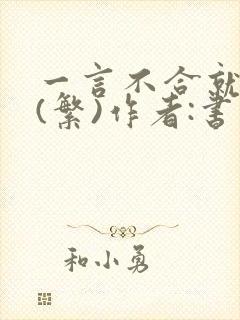 一言不合就
(繁)作者:書
和小勇